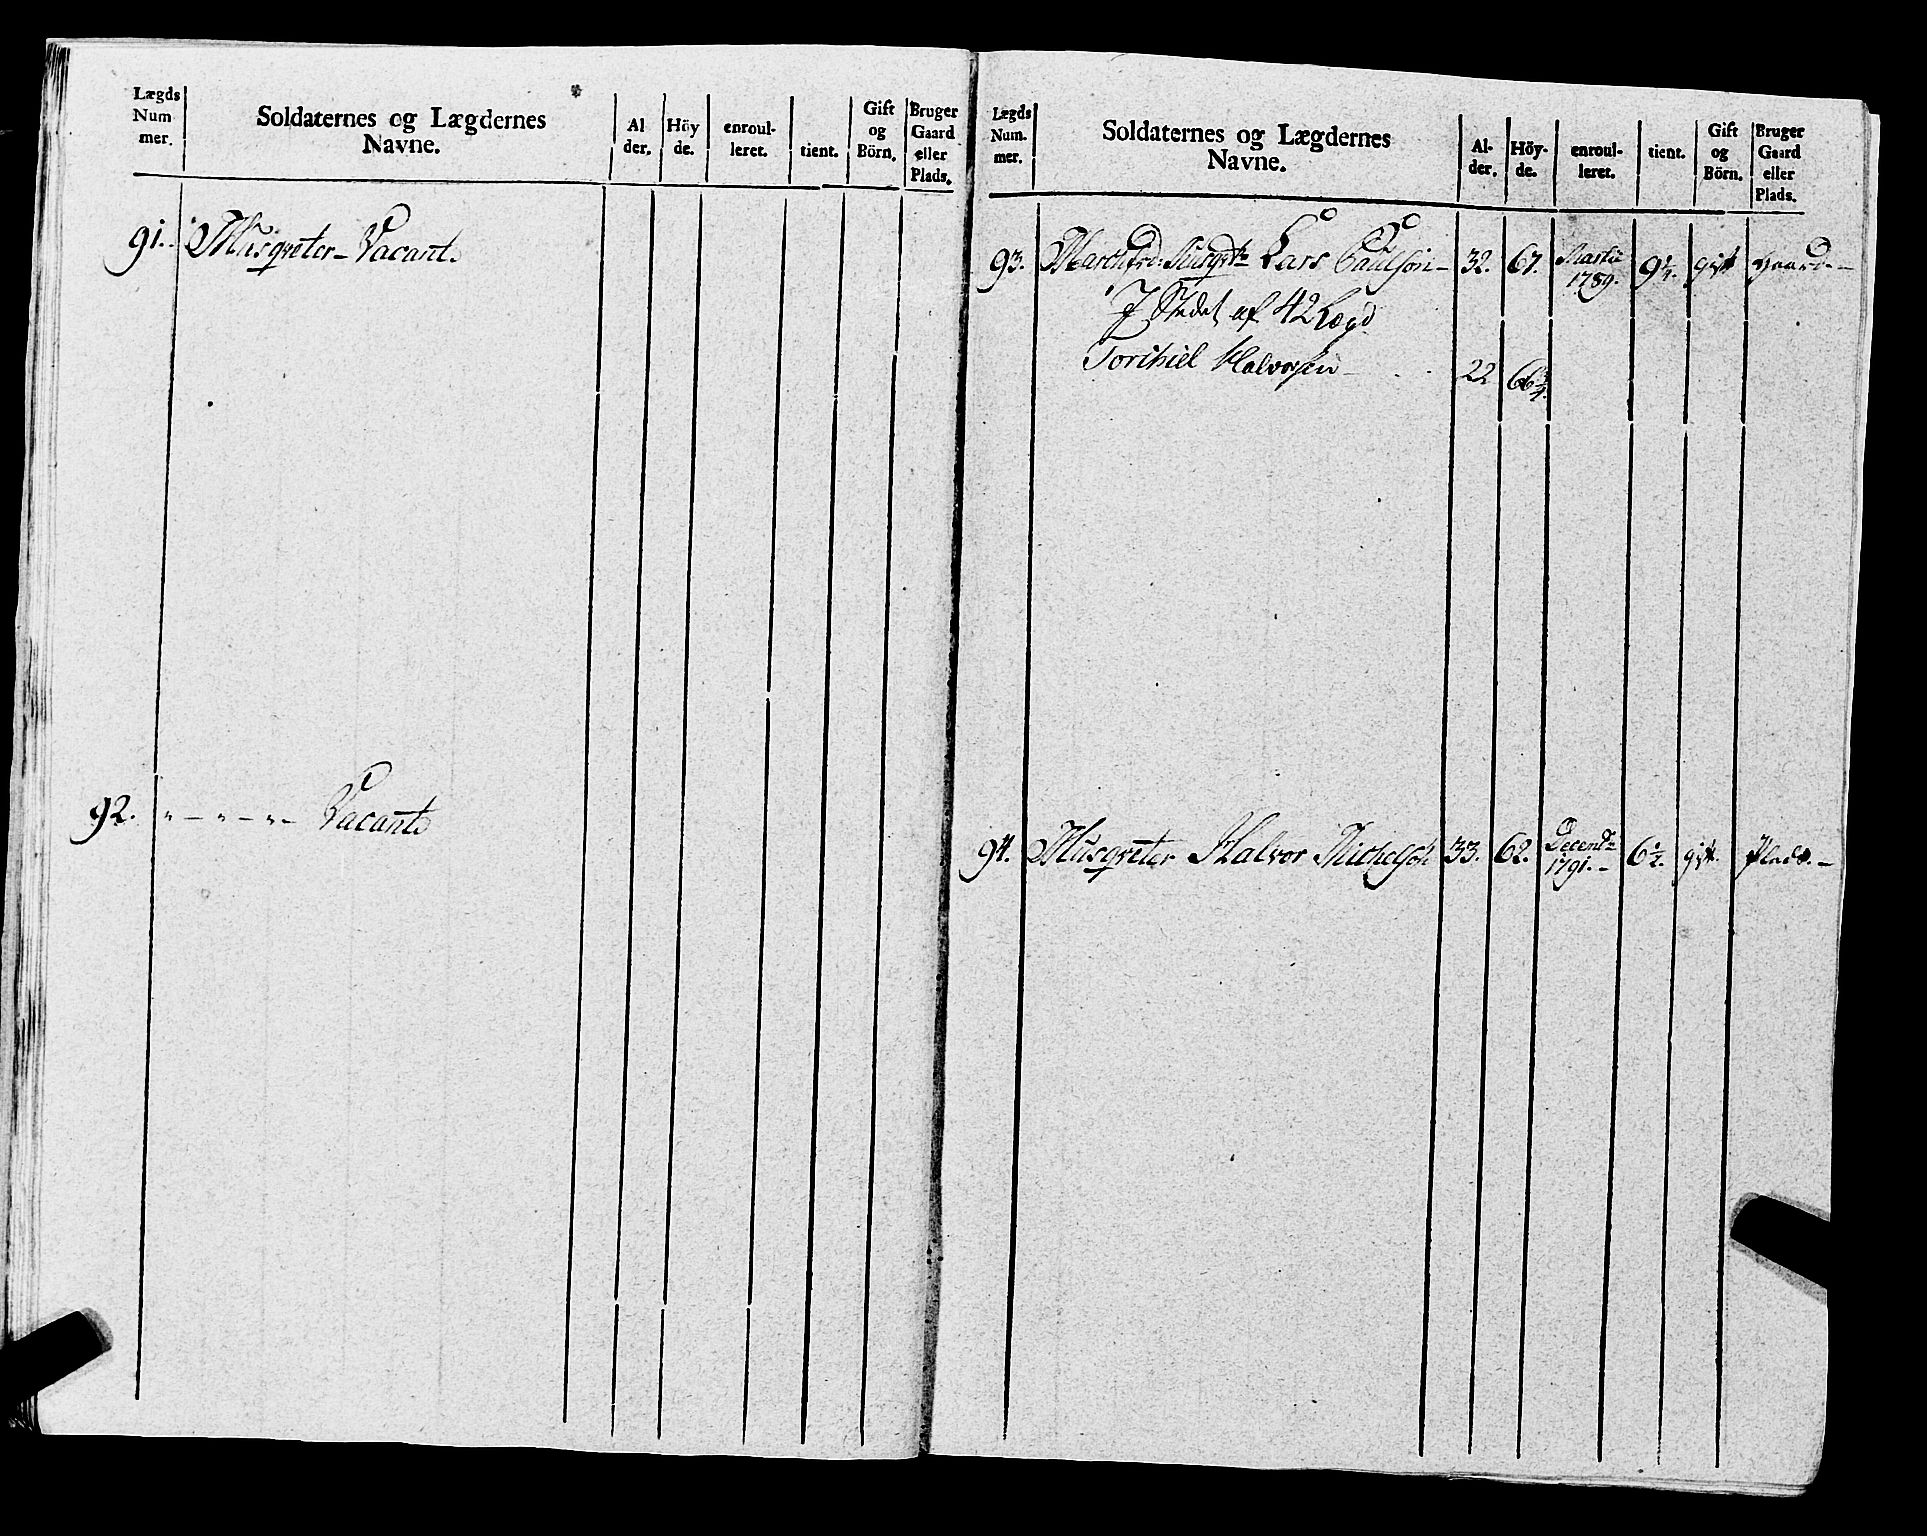 Lægds Num mer. Soldaternes og Lægdernes Navne. Al der. Höy de. enroul- leret. tient. Gift og Börn. Bruger Gaard eller Plads.
91. Musqveter - Vacant.
92. " - " - " - Vacant
Lægds Num. mer. Soldaternes og Lægdernes Navne. Al- der. Höy- de. enroul- leret. tient. Gift og Börn. Bruger Gaard eller Plads.
93. Lars Paulson - 32. 67. Martii 1789. gift Gaard. -
I Stedet af 42 Lægd
Torchiel Halvorsen - 22 66 3/4.
94. Musqveter Halvor Michelson 33. 62. 1791. - gift. Plads. -